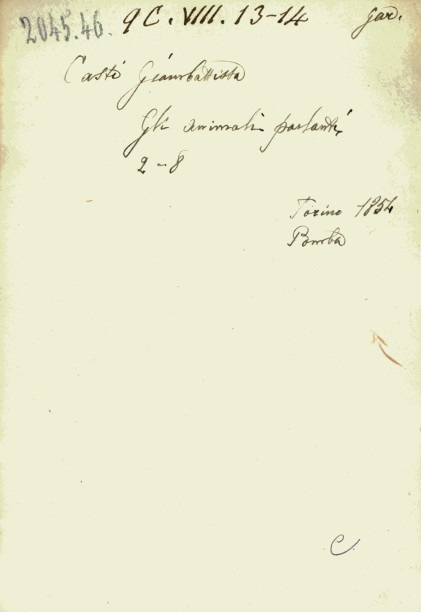 2045.46. 9C. VIII. 13-14 gar.
Casti Giambattista
Gli animali parlanti,
2-8
Torino 1854
Pomba
C